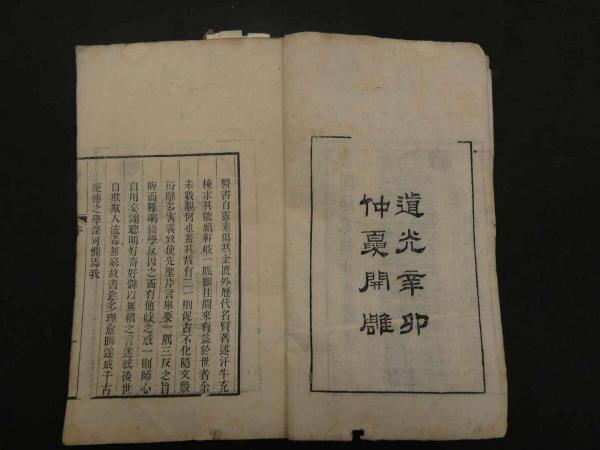 道光辛卯
仲夏開雕
醫書自靈素傷寒金匱外歷代名賢著述汗牛充
棟求其能續軒岐一脈繼往開來有益於世者余
未數覯何也蓋其故有二一則泥古不化隨文敷
衍辭多害義致使先聖片言舉要一隅三反之旨
晦而難明後學反因之而有他歧之惑一則師心
自用妄謂聰明好奇好僻以無稽之言迷惑後世
自欺欺人流毒無窮故書愈多理愈晦遂成千古
絕傳之學深可憫焉我
序